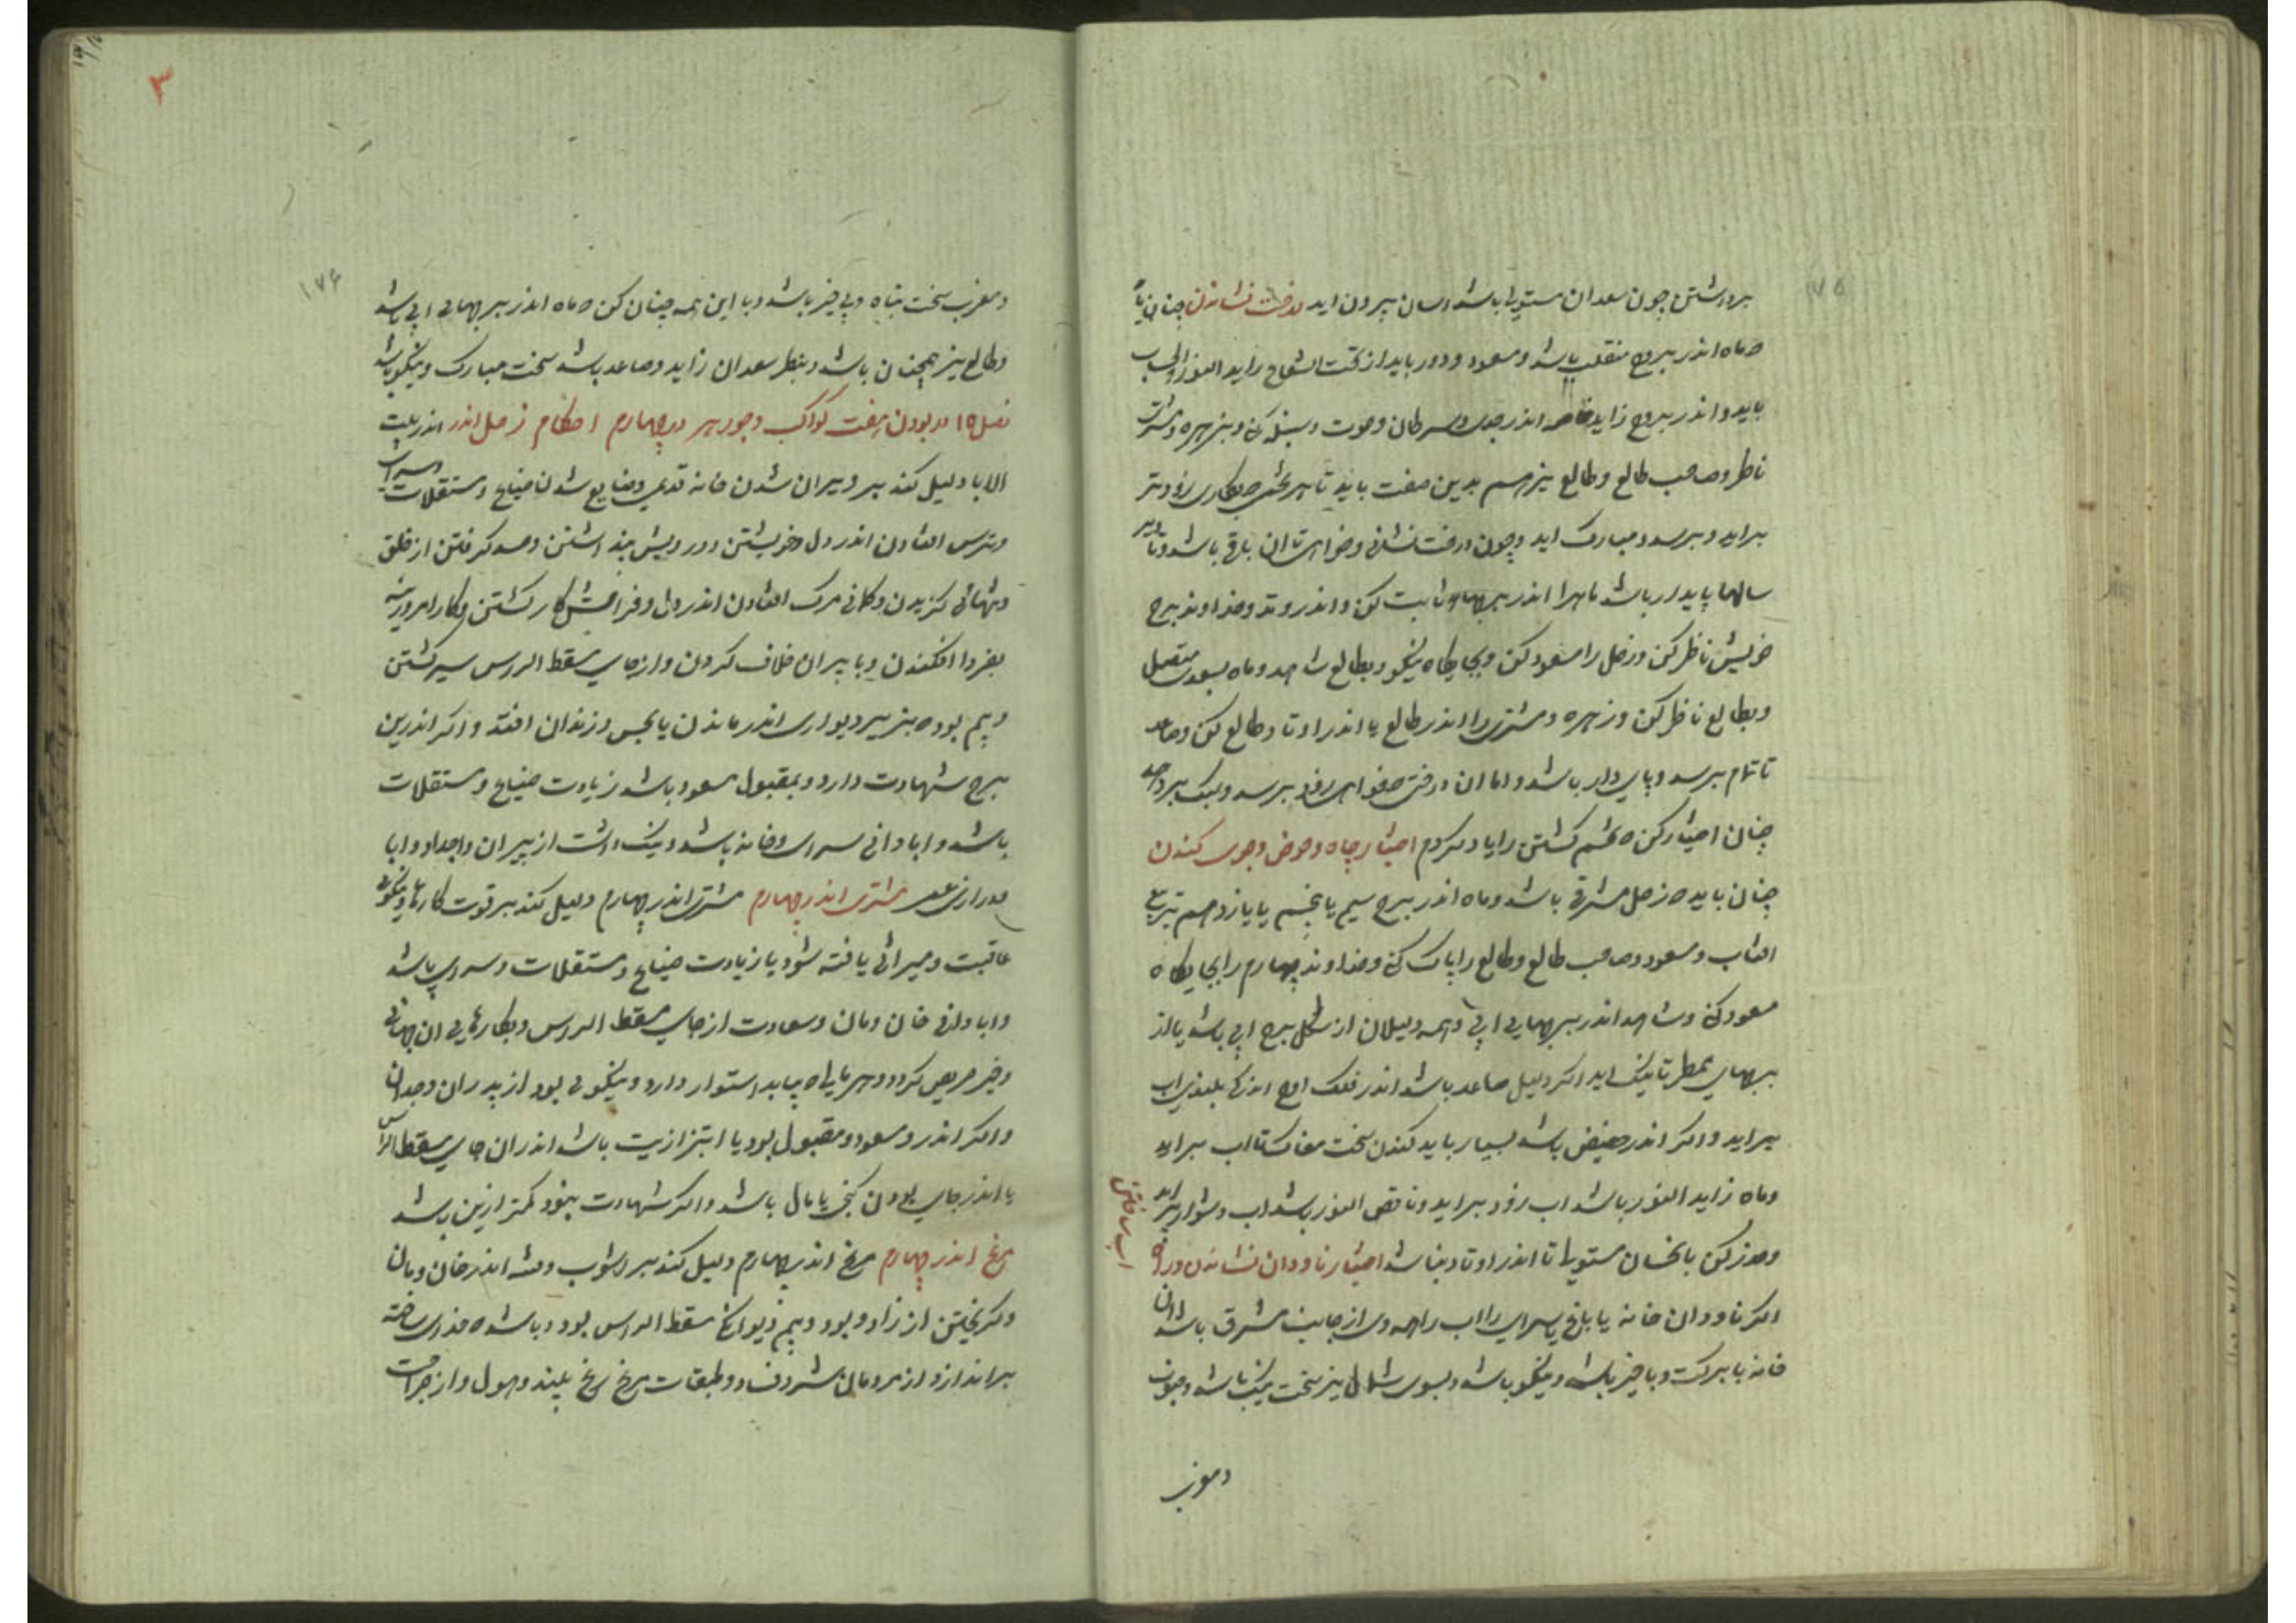 ۱۷۵
برداشتن چون سعدان مستولی باشد اسان بیرون اید درخت نشاندن چنان باید
که ماه اندر بروج منقلب باشد و مسعود و دور باید از تحت الشعاع زاید النور والحساب
باید و اندر بروج زاید خاصه اندر جدی و سرطان و حوت و سنبله کن و بزهره و مشتری
ناظر و صاحب طالع و طالع نیز هم بدین صفت باید تا هر تخم که بکاری زودتر
براید و برسد و مبارک اید و چون درخت نشانی و خواهی تا ان باقی باشد و تا دیر
سالها پایدار باشد ماه را اندر برجهای ثابت کن و اندر وتد و خداوند برج
خویش ناظر کن و زحل را مسعود کن و بجایگاه نیکو و بطالع شاهد و ماه بسعدی متصل
و بطالع ناظر کن و زهره و مشتری را اندر طالع یا اندر اوتاد طالع کن و صاعد
تا تمام برسد و پای دار باشد و اما ان درختی که خواهی زود برسد و سبک بر دهد
چنان اختیار کن که تخم کشتن را یاد کردم اختیار چاه و حوض و جوی کندن
چنان باید که زحل مشرقی باشد و ماه اندر برج سیم یا پنجم یا یازدهم تربیع
افتاب و مسعود و صاحب طالع و طالع را پاک کن و خداوند چهارم را بجایگاه
مسعود کن و شاهد اندر برجهایی ابی و همه دلیلان از شکل برج ابی باشد یا از
برجهای ممطر تا نیک اید اگر دلیل صاعد باشد اندر فلک اوج اندکی بلندی اب
براید و اگر اندر حضیض باشد بسیار باید کندن سخت مغاک تا اب براید
وماه زاید النور باشد اب زود براید و ناقص النور باشد اب دشوار براید
وحذر کن بانحسان مستولی تا اندر اوتاد نباشد اختیار ناودان نشاندن و راه
اب ساختن
اگر ناودان خانه یا باغ یا سرای را اب راهه وی از جانب مشرق باشد ان
خانه با برکت و با خیر باشد و نیکو باشد و بسوی شمال نیز سخت نیک باشد و جنوب
ومغرب
۳
۱۷۶
ومغرب سخت تباه و بی خیر باشد و با این همه چنان کن که ماه اندر برجهایی ابی باشد
وطالع نیز همچنان باشد و بنظر سعدان زاید و صاعد باشد سخت مبارک و نیکو باشد
فصل ۱۵ در بودن هفت کواکب و جوزهر در چهارم احکام زحل اندر اندر بیت
الابا دلیل کند بر ویران شدن خانه قدیمی و ضایع شدن ضیاع و مستقلات و سرای
وترس افتادن اندر دل و خویشتن درویش پنداشتن و حسد گرفتن از خلق
وتنهائی گزیدن و گمانی مرگ افتادن اندر دل و فرامش کار گشتن و کار امروزینه
بفردا افکندن و با پیران خلاف کردن و از جای مسقط الراس سیر گشتن
وبیم بود که بزیر دیواری اندر ماندن یا بحبس و زندان افتد و اگر اندرین
برج شهادت دارد و بمقبول مسعود باشد زیادت ضیاع و مستقلات
باشد و ابادانی سرای و خانه باشد و نیک داشت از پیران و اجداد و ابا
ودرازی عمر مشتری اندر چهارم مشتری اندر چهارم دلیل کند بر قوت کارها و نیکوئی
عاقبت و میراثی یافته شود یا زیادت ضیاع و مستقلات و سرای باشد
وابادانی خان و مان و سعادت از جای مسقط الراس و بکارهایی ان جهانی
وخیر حریص گردد و هر مالی که بیابد استوار دارد و نیکویی بود از پدران و جدان
واگر اندرو مسعود و مقبول بود یا ابتزازیت باشد اندران جای مسقط الراس
یا اندر جای بودن گنجی یا مال باشد و اگر شهادت نبود کمتر ازین باشد
مریخ اندر چهارم مریخ اندر چهارم دلیل کند بر اشوب و فتنه اندر خان و مان
وگریختن از زاد و بود و بیم دیوانگی مسقط الراس بود و باشد که خدای ساخته
براندازد از مردمان مشر و فساد و طبقات مریخ رنج بیند و هول و از جراحت